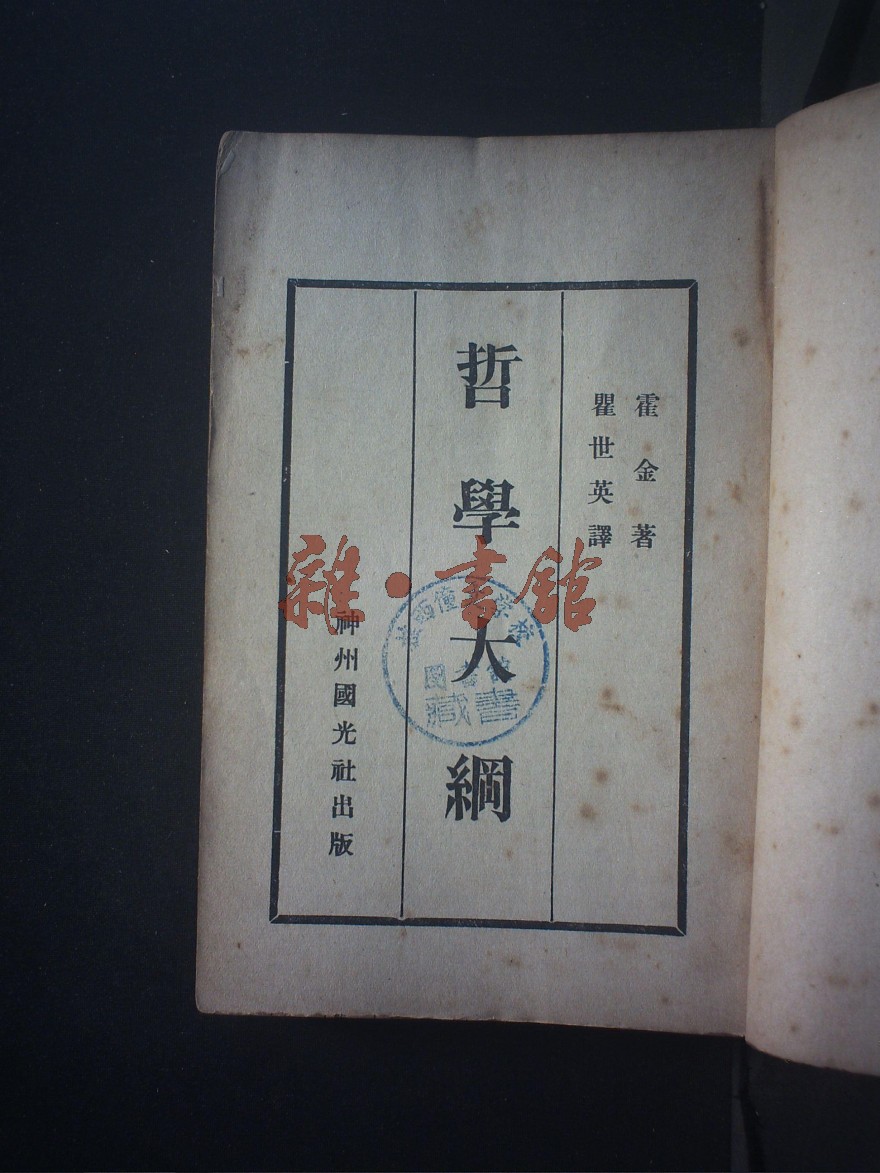 霍金著
瞿世英譯
哲學大綱
神州國光社出版
雜·書館
藏書